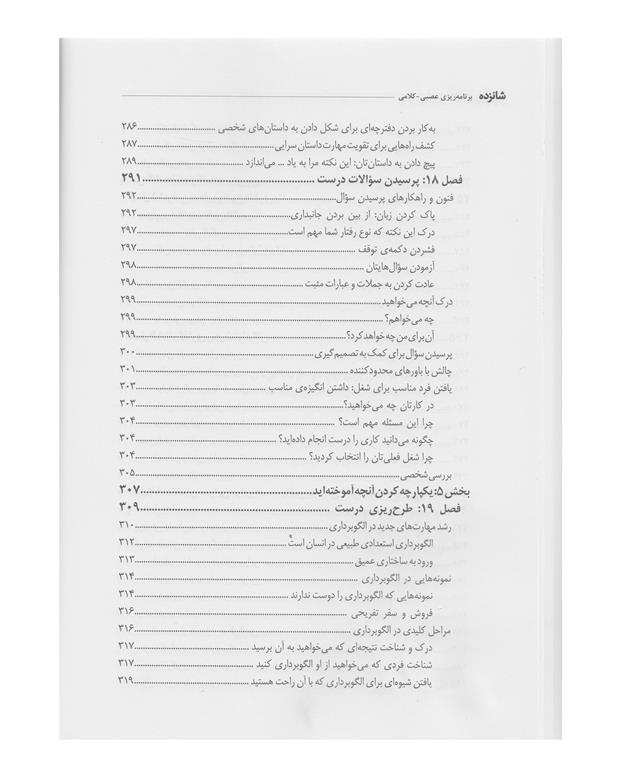 شانزده برنامه‌ریزی عصبی-کلامی
به‌کار بردن دفترچه‌ای برای شکل دادن به داستان‌های شخصی ........ ۲۸۶
کشف راه‌هایی برای تقویت مهارت داستان سرایی ........ ۲۸۷
پیچ دادن به داستان‌تان: این نکته مرا به یاد ... می‌اندازد ........ ۲۸۹
فصل ۱۸: پرسیدن سؤالات درست ........ ۲۹۱
فنون و راهکارهای پرسیدن سؤال ........ ۲۹۲
پاک کردن زبان: از بین بردن جانبداری ........ ۲۹۲
درک این نکته که نوع رفتار شما مهم است ........ ۲۹۷
فشردن دکمه‌ی توقف ........ ۲۹۷
آزمودن سؤال‌هایتان ........ ۲۹۸
عادت کردن به جملات و عبارات مثبت ........ ۲۹۸
درک آنچه می‌خواهید ........ ۲۹۹
چه می‌خواهم؟ ........ ۲۹۹
آن برای من چه خواهد کرد؟ ........ ۲۹۹
پرسیدن سؤال برای کمک به تصمیم‌گیری ........ ۳۰۰
چالش با باورهای محدودکننده ........ ۳۰۱
یافتن فرد مناسب برای شغل: داشتن انگیزه‌ی مناسب ........ ۳۰۳
در کارتان چه می‌خواهید؟ ........ ۳۰۳
چرا این مسئله مهم است؟ ........ ۳۰۴
چگونه می‌دانید کاری را درست انجام داده‌اید؟ ........ ۳۰۴
چرا شغل فعلی‌تان را انتخاب کردید؟ ........ ۳۰۴
بررسی شخصی ........ ۳۰۵
بخش ۵: یکپارچه کردن آنچه آموخته‌اید ........ ۳۰۷
فصل ۱۹: طرح‌ریزی درست ........ ۳۰۹
رشد مهارت‌های جدید در الگوبرداری ........ ۳۱۰
الگوبرداری استعدادی طبیعی در انسان است ........ ۳۱۲
ورود به ساختاری عمیق ........ ۳۱۳
نمونه‌هایی در الگوبرداری ........ ۳۱۴
نمونه‌هایی که الگوبرداری را دوست ندارند ........ ۳۱۴
فروش و سفر تفریحی ........ ۳۱۶
مراحل کلیدی در الگوبرداری ........ ۳۱۶
درک و شناخت نتیجه‌ای که می‌خواهید به آن برسید ........ ۳۱۷
شناخت فردی که می‌خواهید از او الگوبرداری کنید ........ ۳۱۷
یافتن شیوه‌ای برای الگوبرداری که با آن راحت هستید ........ ۳۱۹